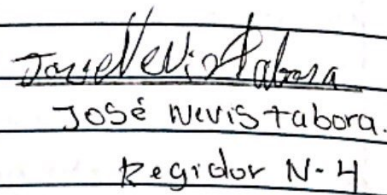 Jose Nevis Tabora
José Nevis tabora.
Regidor N-4